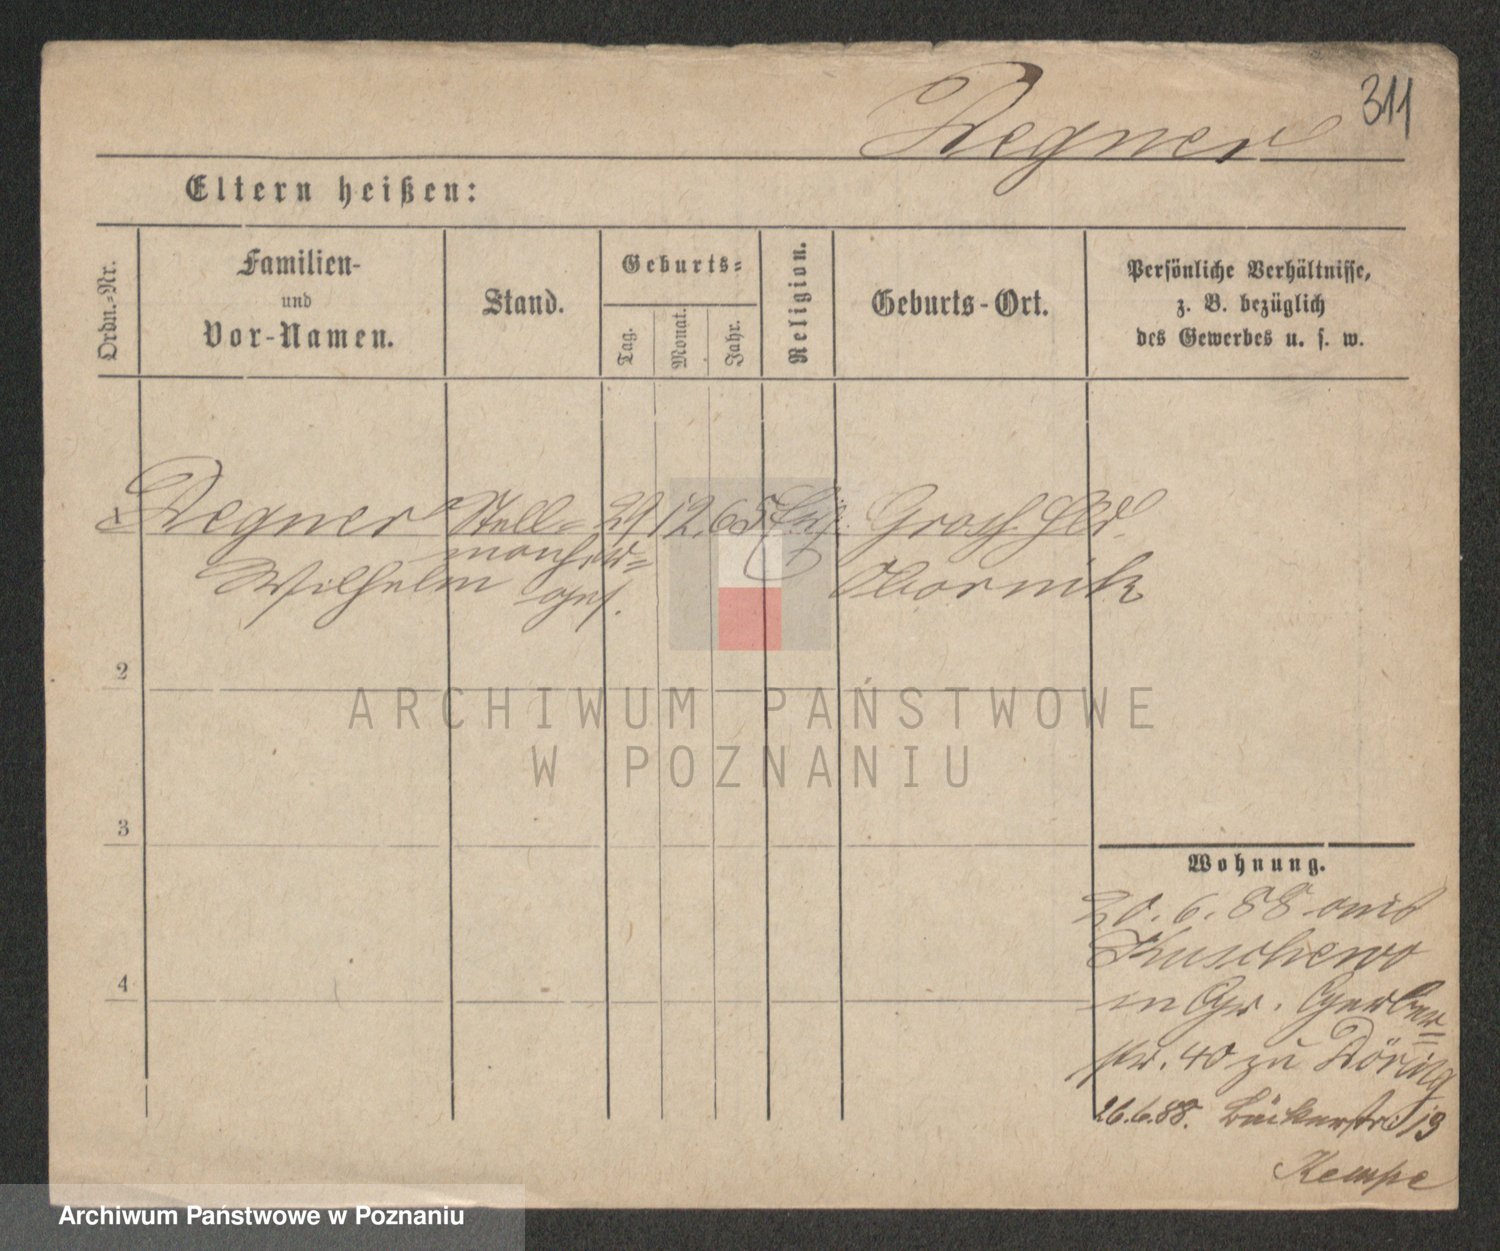 311
Wegner
Eltern heißen:
Ordn.-Nr.
Familien-
und
Vor-Namen.
Stand.
Geburts-
Tag.
Monat.
Jahr.
Religion.
Geburts-Ort.
Persönliche Verhältnisse,
z. B. bezüglich
des Gewerbes u. s. w.
1 Wegner Stell- 12. 65
Wilhelm
Obornik
2
3
4
Wohnung.
20. 6. 88 aus
in Gr. Gerber-
str. 40 zu Döring
26.6.88. Bäckerstr. 13
Kempe
ARCHIWUM PAŃSTWOWE
W POZNANIU
Archiwum Państwowe w Poznaniu